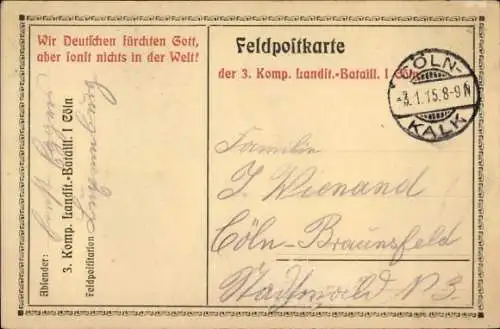 Wir Deutschen fürchten Gott,
aber sonst nichts in der Welt!
Feldpostkarte
der 3. Komp. Landst.-Bataill. I Cöln
CÖLN-
-3.1.15.8-9N
KALK
Absender:
3. Komp. Landst.-Bataill. I Cöln
Feldpoststation
Familie
J. Wienand
Cöln-Braunsfeld
Stadtwald N 3